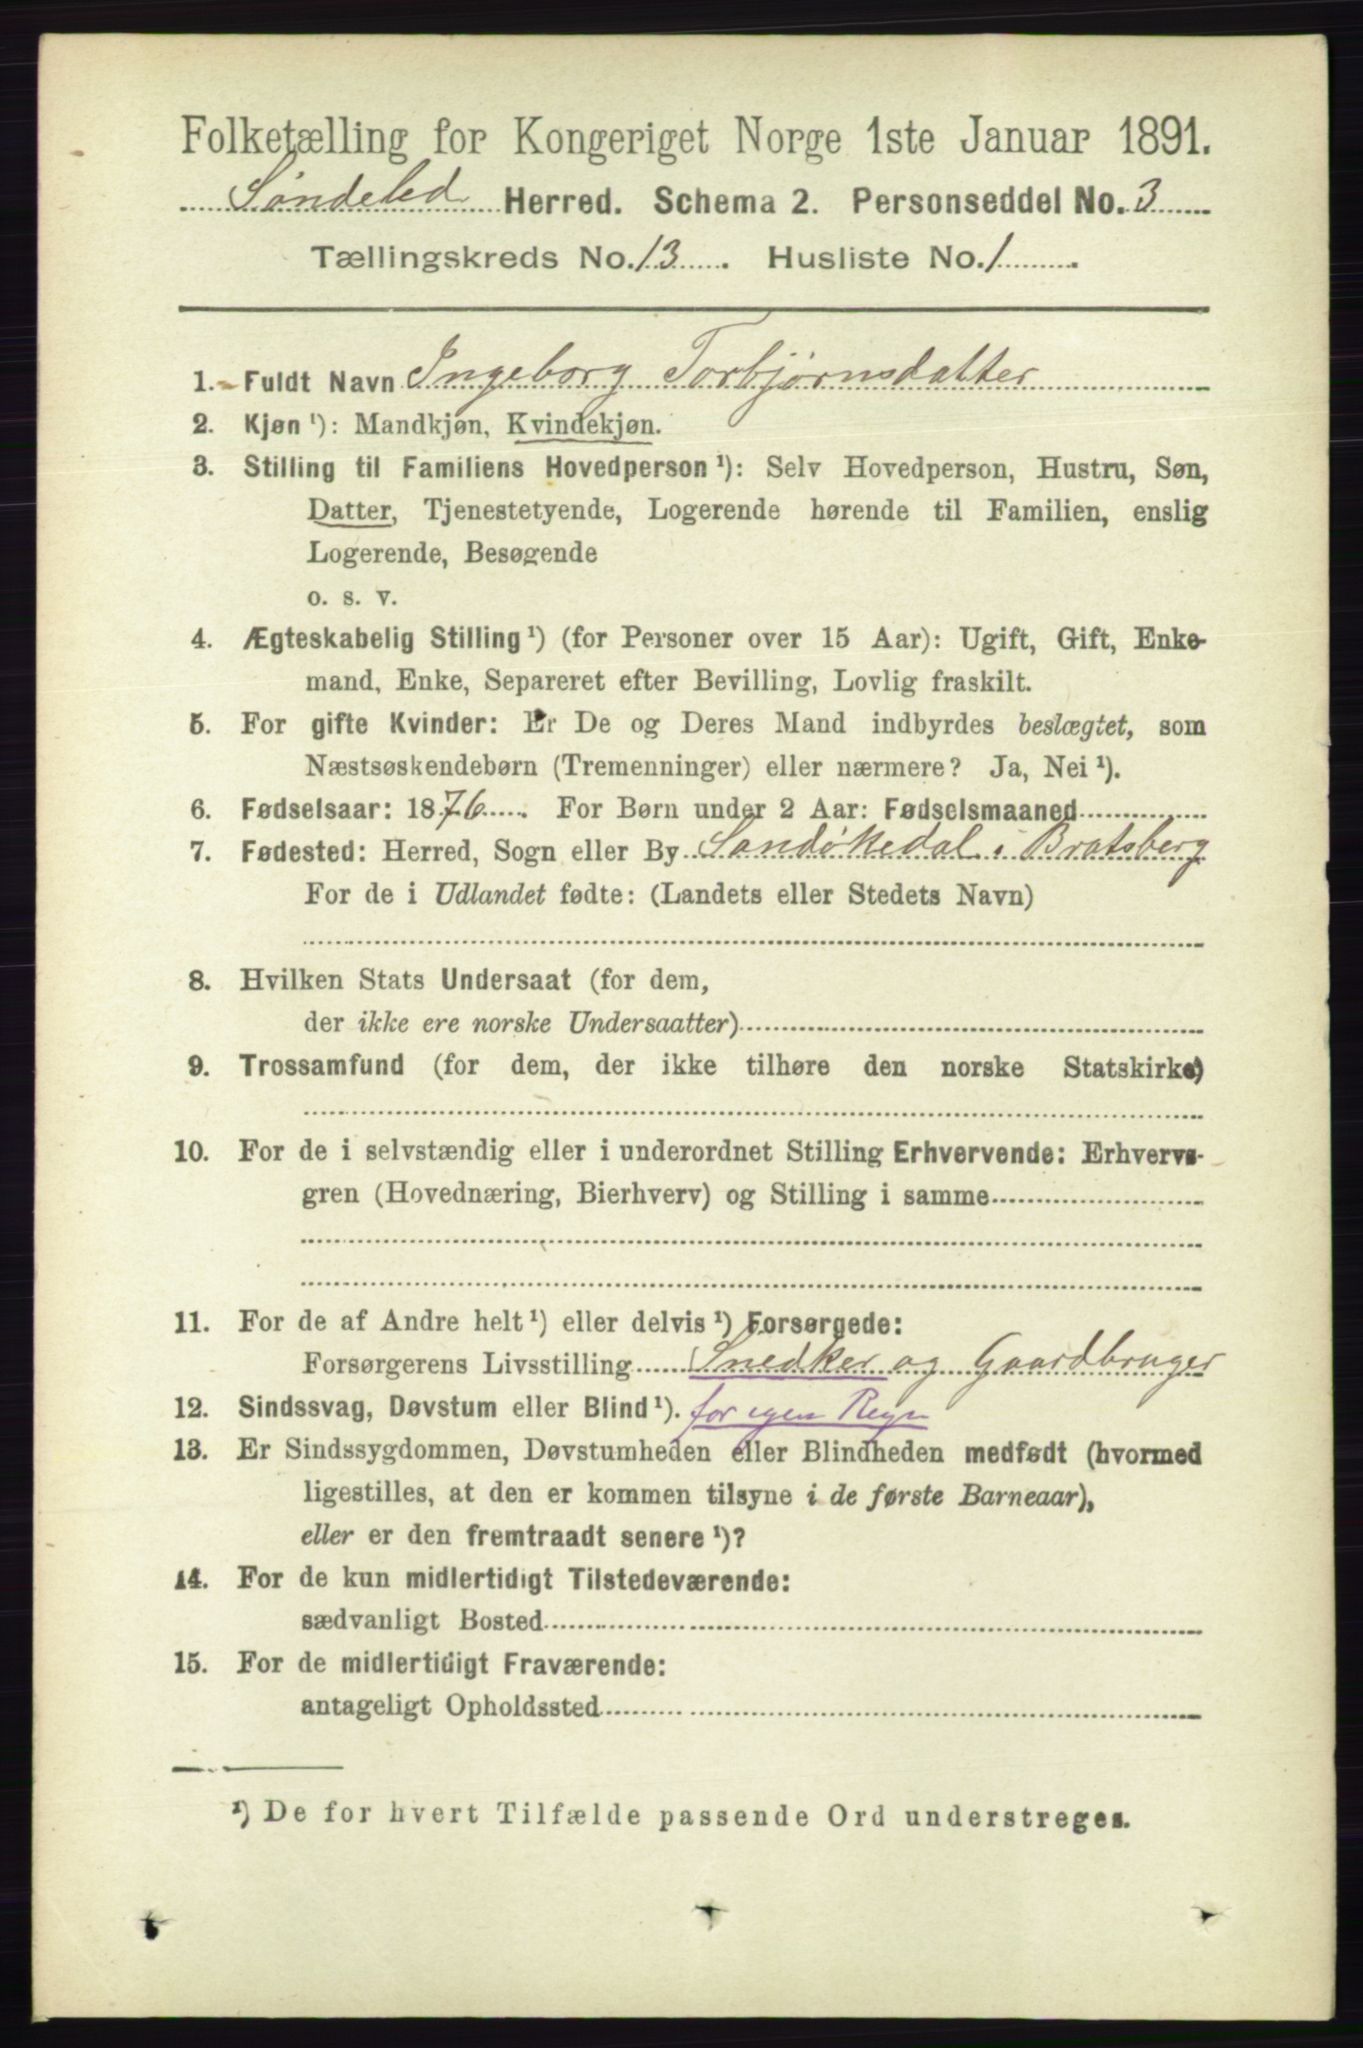 Folketælling for Kongeriget Norge 1ste Januar 1891.
Søndeled Herred. Schema 2. Personseddel No. 3
Tællingskreds No. 13. Husliste No. 1.
1. Fuldt Navn Ingeborg Torbjørnsdatter
2. Kjøn ¹): Mandkjøn, Kvindekjøn.
3. Stilling til Familiens Hovedperson ¹): Selv Hovedperson, Hustru, Søn,
Datter, Tjenestetyende, Logerende hørende til Familien, enslig
Logerende, Besøgende
o. s. v.
4. Ægteskabelig Stilling ¹) (for Personer over 15 Aar): Ugift, Gift, Enke-
mand, Enke, Separeret efter Bevilling, Lovlig fraskilt.
5. For gifte Kvinder: Er De og Deres Mand indbyrdes beslægtet, som
Næstsøskendebørn (Tremenninger) eller nærmere? Ja, Nei ¹).
6. Fødselsaar: 1876. For Børn under 2 Aar: Fødselsmaaned
7. Fødested: Herred, Sogn eller By Sandøkedal i Bratsberg
For de i Udlandet fødte: (Landets eller Stedets Navn)
8. Hvilken Stats Undersaat (for dem,
der ikke ere norske Undersaatter)
9. Trossamfund (for dem, der ikke tilhøre den norske Statskirke)
10. For de i selvstændig eller i underordnet Stilling Erhvervende: Erhvervs-
gren (Hovednæring, Bierhverv) og Stilling i samme
11. For de af Andre helt ¹) eller delvis ¹) Forsørgede:
Forsørgerens Livsstilling Snedker og Gaardbruger
12. Sindssvag, Døvstum eller Blind ¹). for egen Regn
13. Er Sindssygdommen, Døvstumheden eller Blindheden medfødt (hvormed
ligestilles, at den er kommen tilsyne i de første Barneaar),
eller er den fremtraadt senere ¹)?
14. For de kun midlertidigt Tilstedeværende:
sædvanligt Bosted
15. For de midlertidigt Fraværende:
antageligt Opholdssted
¹) De for hvert Tilfælde passende Ord understreges.